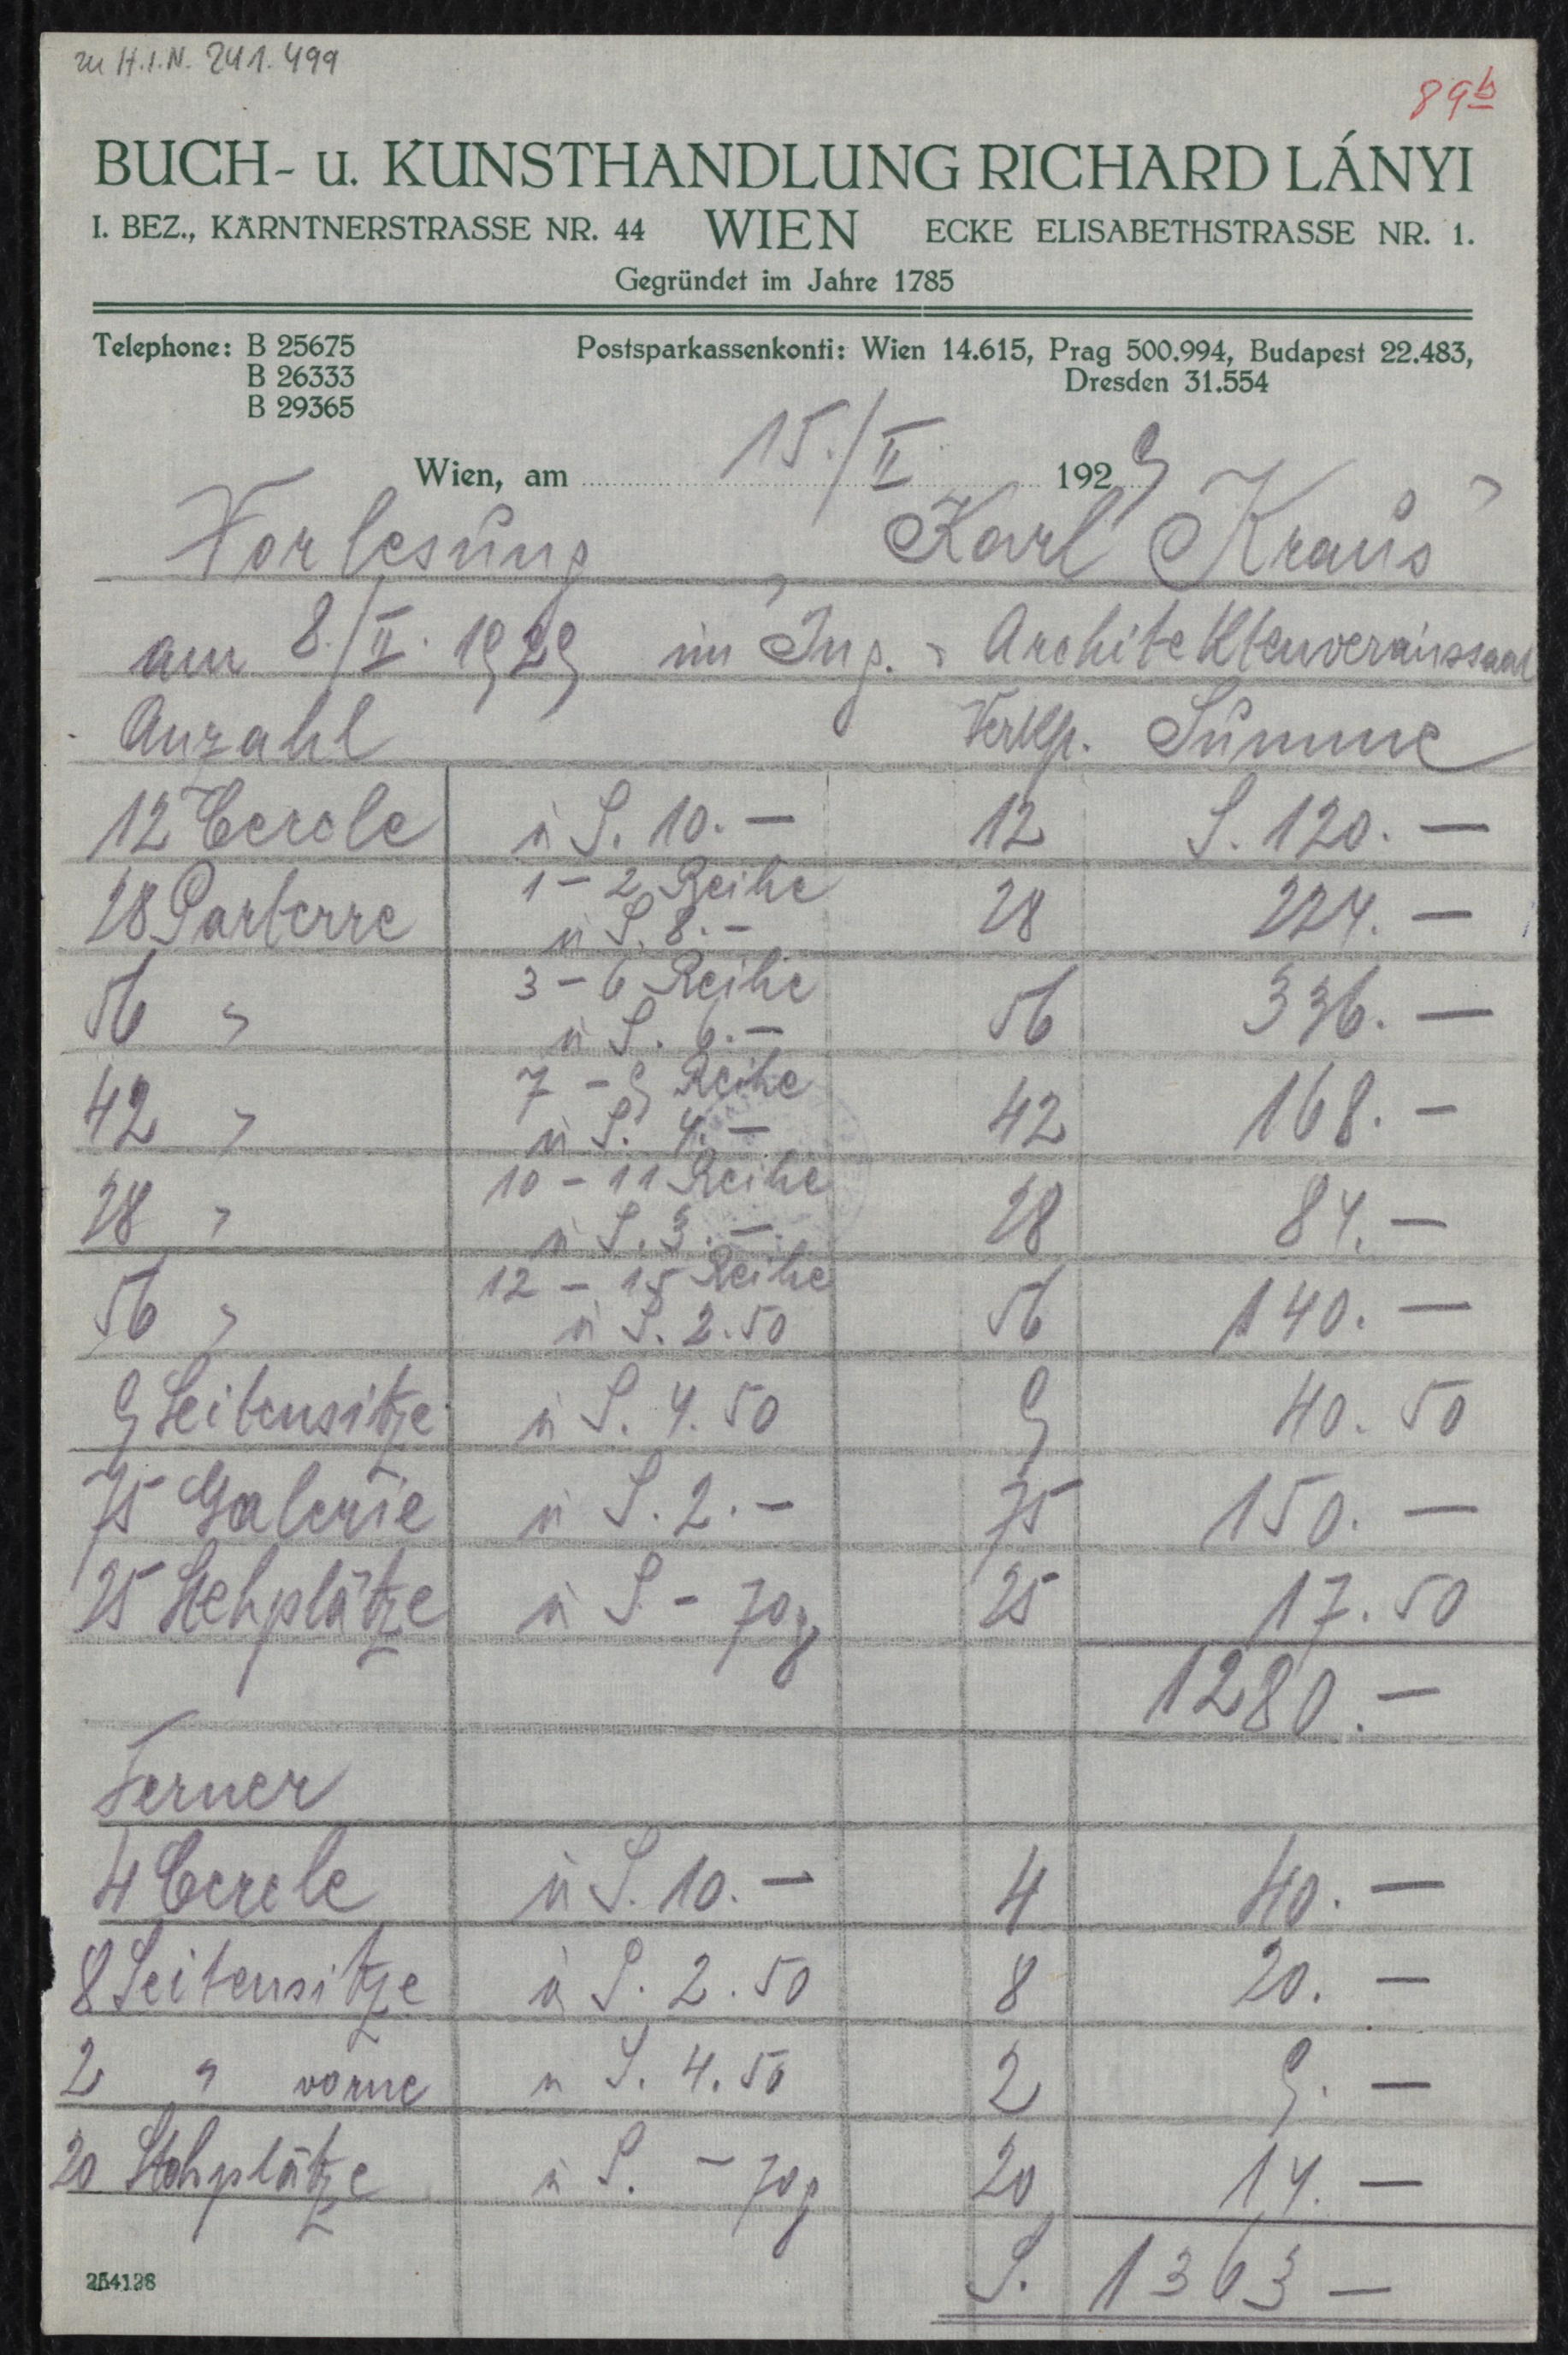 zu H.I.N. 241.499
89b
BUCH- u. KUNSTHANDLUNG RICHARD LÁNYI
I. BEZ., KÄRNTNERSTRASSE NR. 44 WIEN ECKE ELISABETHSTRASSE NR. 1.
Gegründet im Jahre 1785
Telephone: B 25675 Postsparkassenkonti: Wien 14.615, Prag 500.994, Budapest 22.483,
B 26333 Dresden 31.554
B 29365
Wien, am 15./II 1929
Vorlesung „Karl Kraus"
am 8./II. 1929 im Ing. u. Architektenvereinssaal
Anzahl Verkp. Summe
12 Cercle à S. 10.— 12 S. 120.—
1 – 2 Reihe
28 Parterre à S. 8.– 28 224.—
3 – 6 Reihe
56 " à S. 6.— 56 336.—
7 – 9 Reihe
42 " à S. 4.— 42 168.–
10 – 11 Reihe
28 " à S. 3.— 28 84.—
12 – 15 Reihe
56 " à S. 2.50 56 140.—
9 Seitensitze à S. 4.50 9 40.50
75 Galerie à S. 2.– 75 150.—
25 Stehplätze à S – 70g 25 17.50
1280.—
Ferner
4 Cercle à S. 10.— 4 40.—
8 Seitensitze à S. 2.50 8 20.—
2 " vorne à S. 4.50 2 9.—
20 Stehplätze à S. – 70g 20 14.—
S. 1363 —
254128